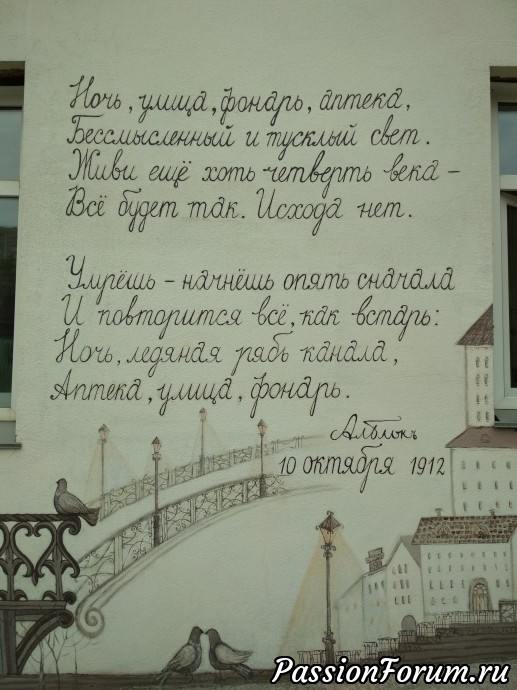 Ночь, улица, фонарь, аптека,
Бессмысленный и тусклый свет.
Живи ещё хоть четверть века –
Всё будет так. Исхода нет.
Умрёшь – начнёшь опять сначала
И повторится всё, как встарь:
Ночь, ледяная рябь канала,
Аптека, улица, фонарь.
Ал.Блокъ
10 октября 1912
PassionForum.ru